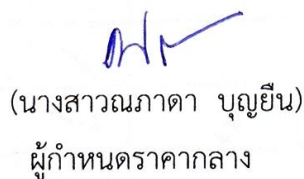 (นางสาวณภาดา บุญยืน)
ผู้กำหนดราคากลาง